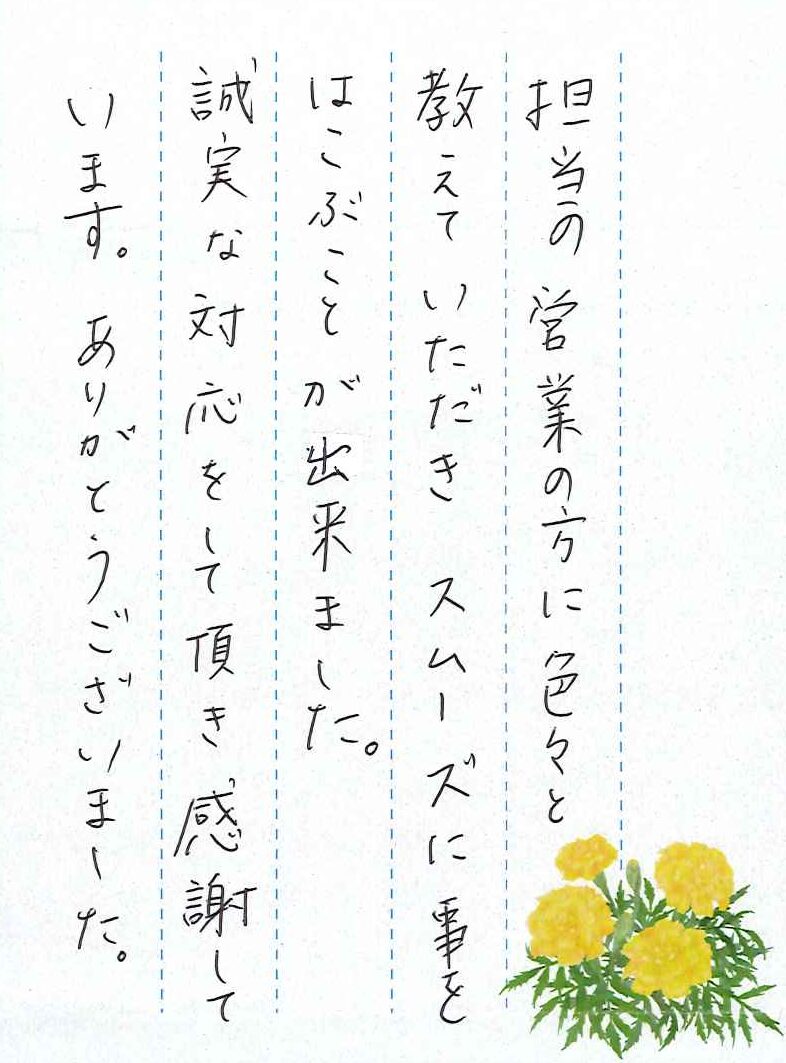 担当の営業の方に色々と
教えていただき スムーズに事を
はこぶことが出来ました。
誠実な対応をして頂き感謝して
います。ありがとうございました。